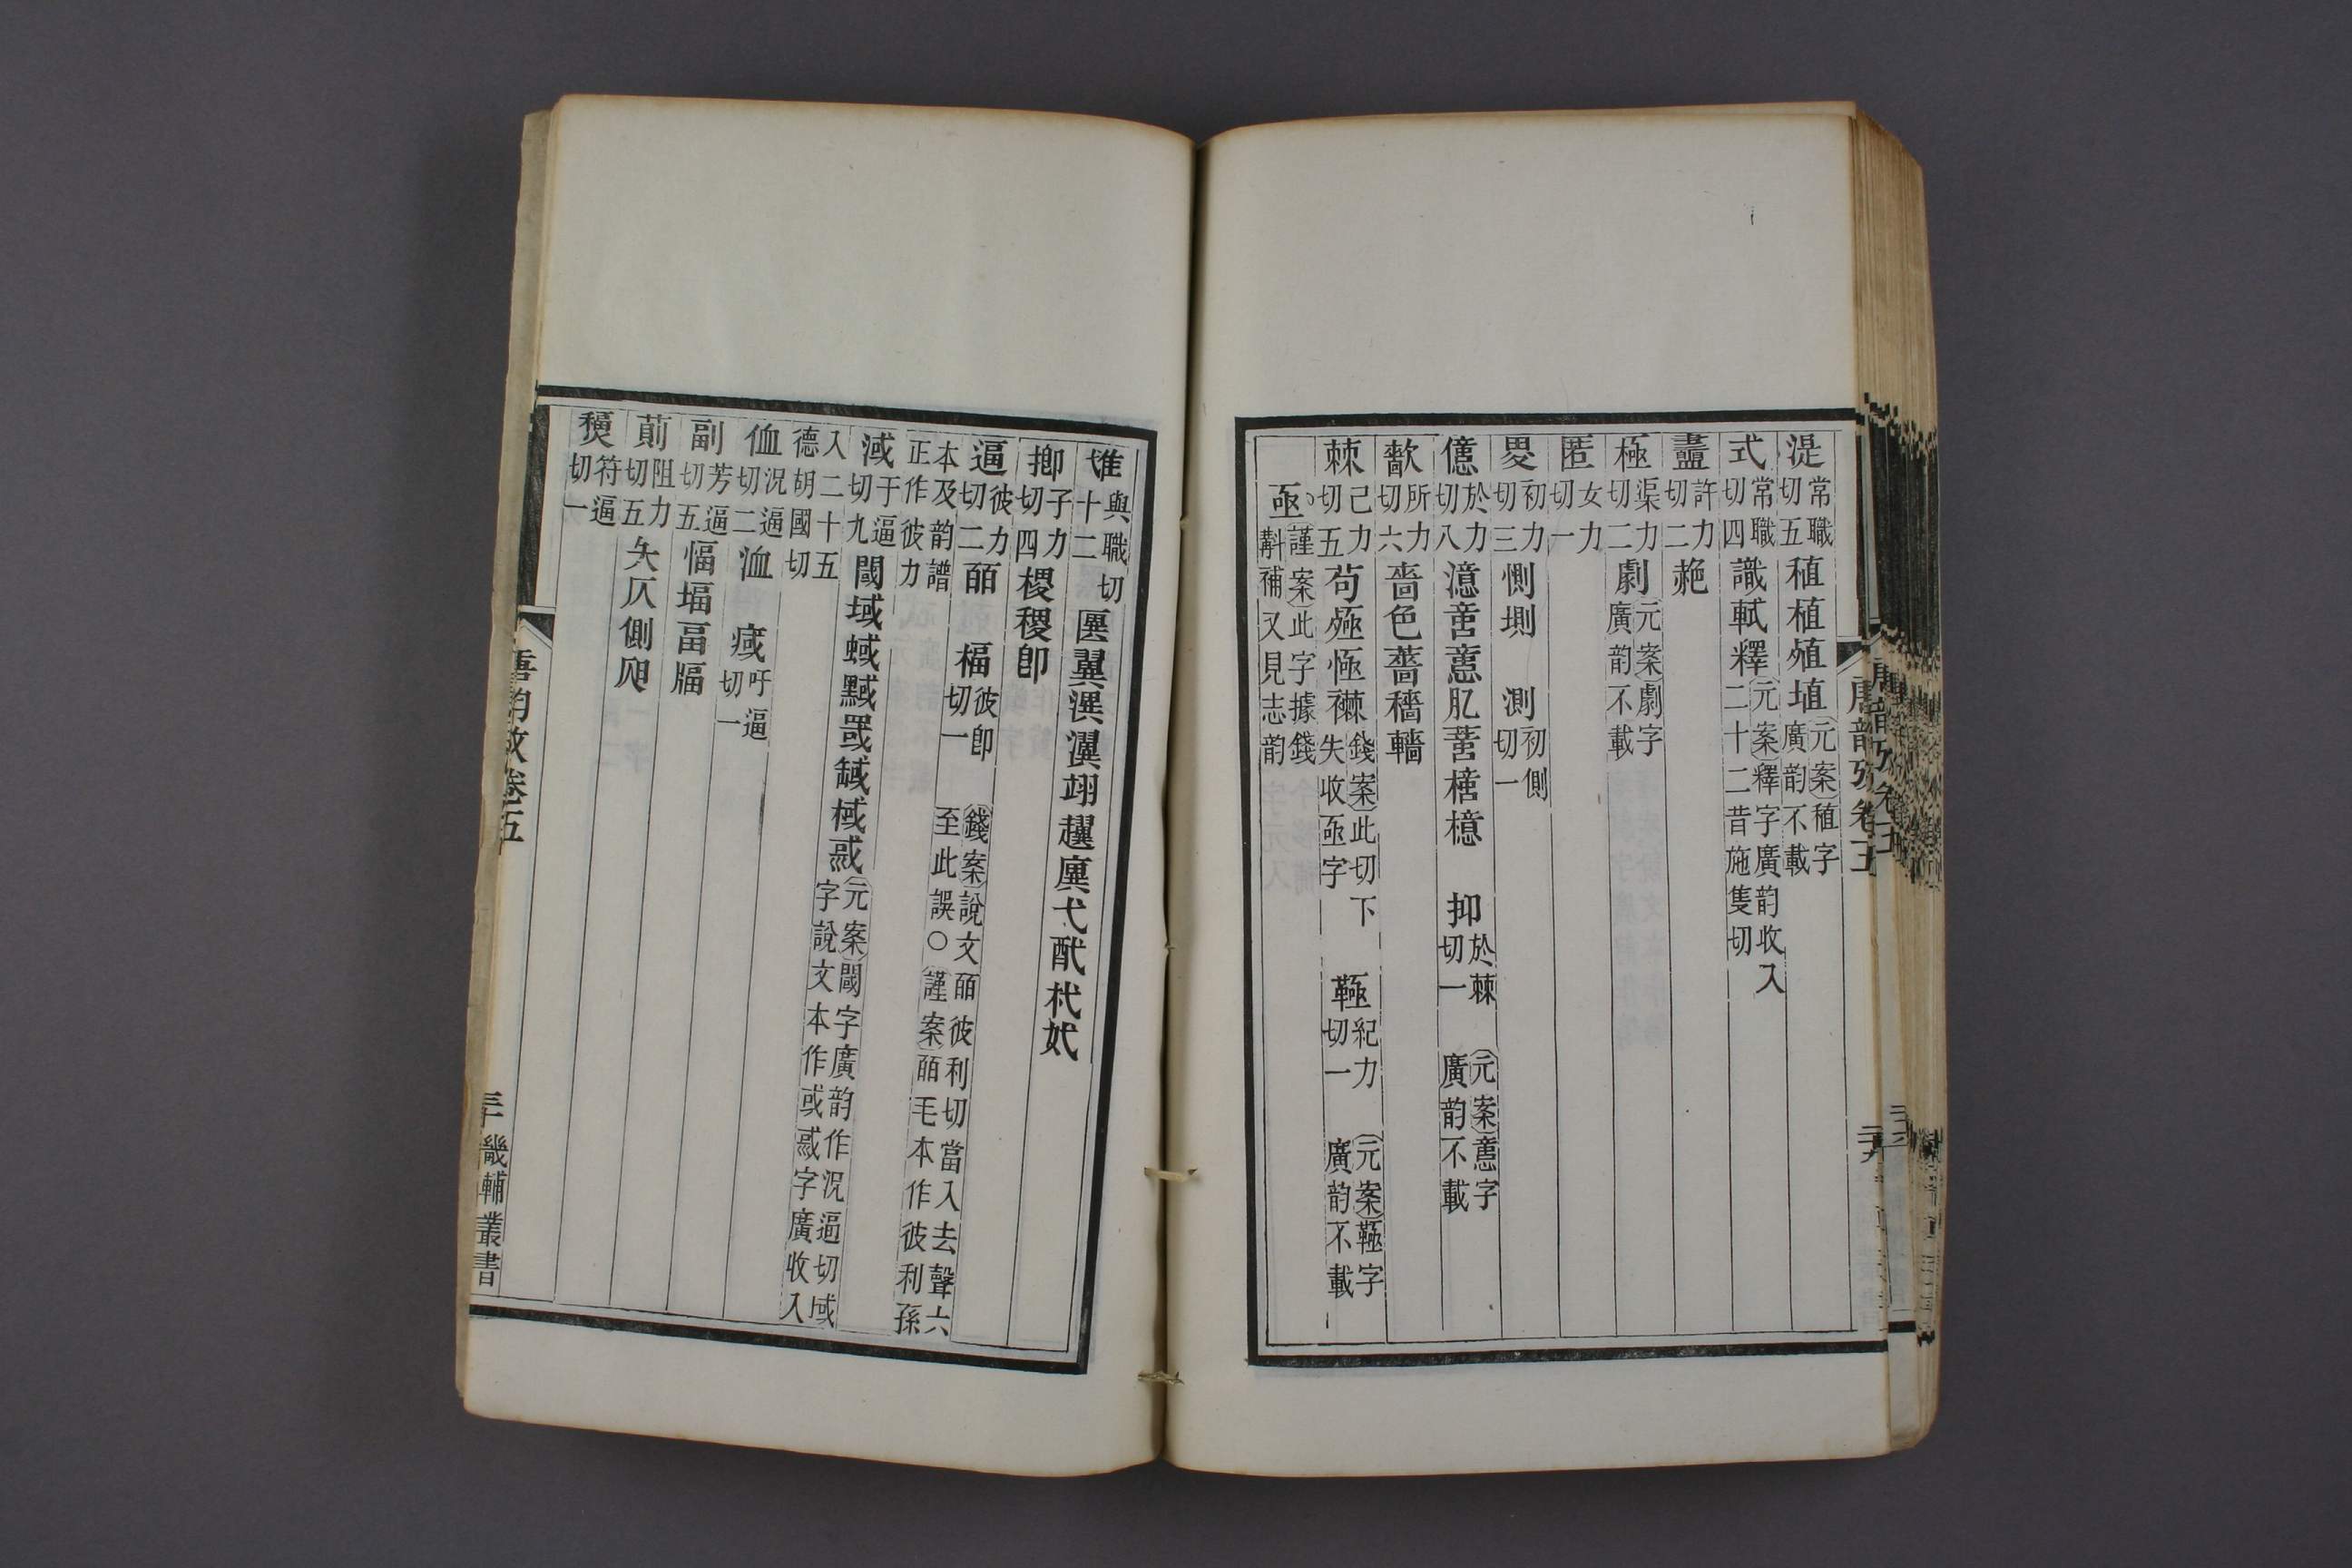 湜常職切五稙植殖埴元案稙字廣韵不載
式常職切四識軾釋元案釋字廣韵收入二十二昔施隻切
衋許力切二赩
極渠力切二劇元案劇字廣韵不載
匿女力切一
畟初力切三惻堲 測初側切一
億於力切八澺啻意肊薏檍 抑於棘切一 元案意字廣韵不載
歗所力切六嗇色薔穡轖
棘己力切五茍殛悈襋錢案此切下失收亟字 䩯紀力切一 元案䩯字廣韵不載
亟謹案此字據錢斠補又見志韵
唐韵攷卷五
二十九
隿與職切十二匴翼潩瀷翊趩廙弋酖杙妷
抑子力切四稷稷卽
逼彼力切二皕 楅彼卽切一 錢案說文皕彼利切當入去聲六至此誤○謹案皕毛本作彼利孫
本及韵譜正作彼力
淢于逼切九閾域蜮黬罭緎棫惐元案閾字廣韵作況逼切域字說文本作或惐字廣收入
入二十五德胡國切
侐況逼切二洫 㽣吁逼切一
副芳逼切五愊堛畐腷
萴阻力切五夨仄側昃
稪符逼切一
唐韵攷卷五
三十
畿輔叢書